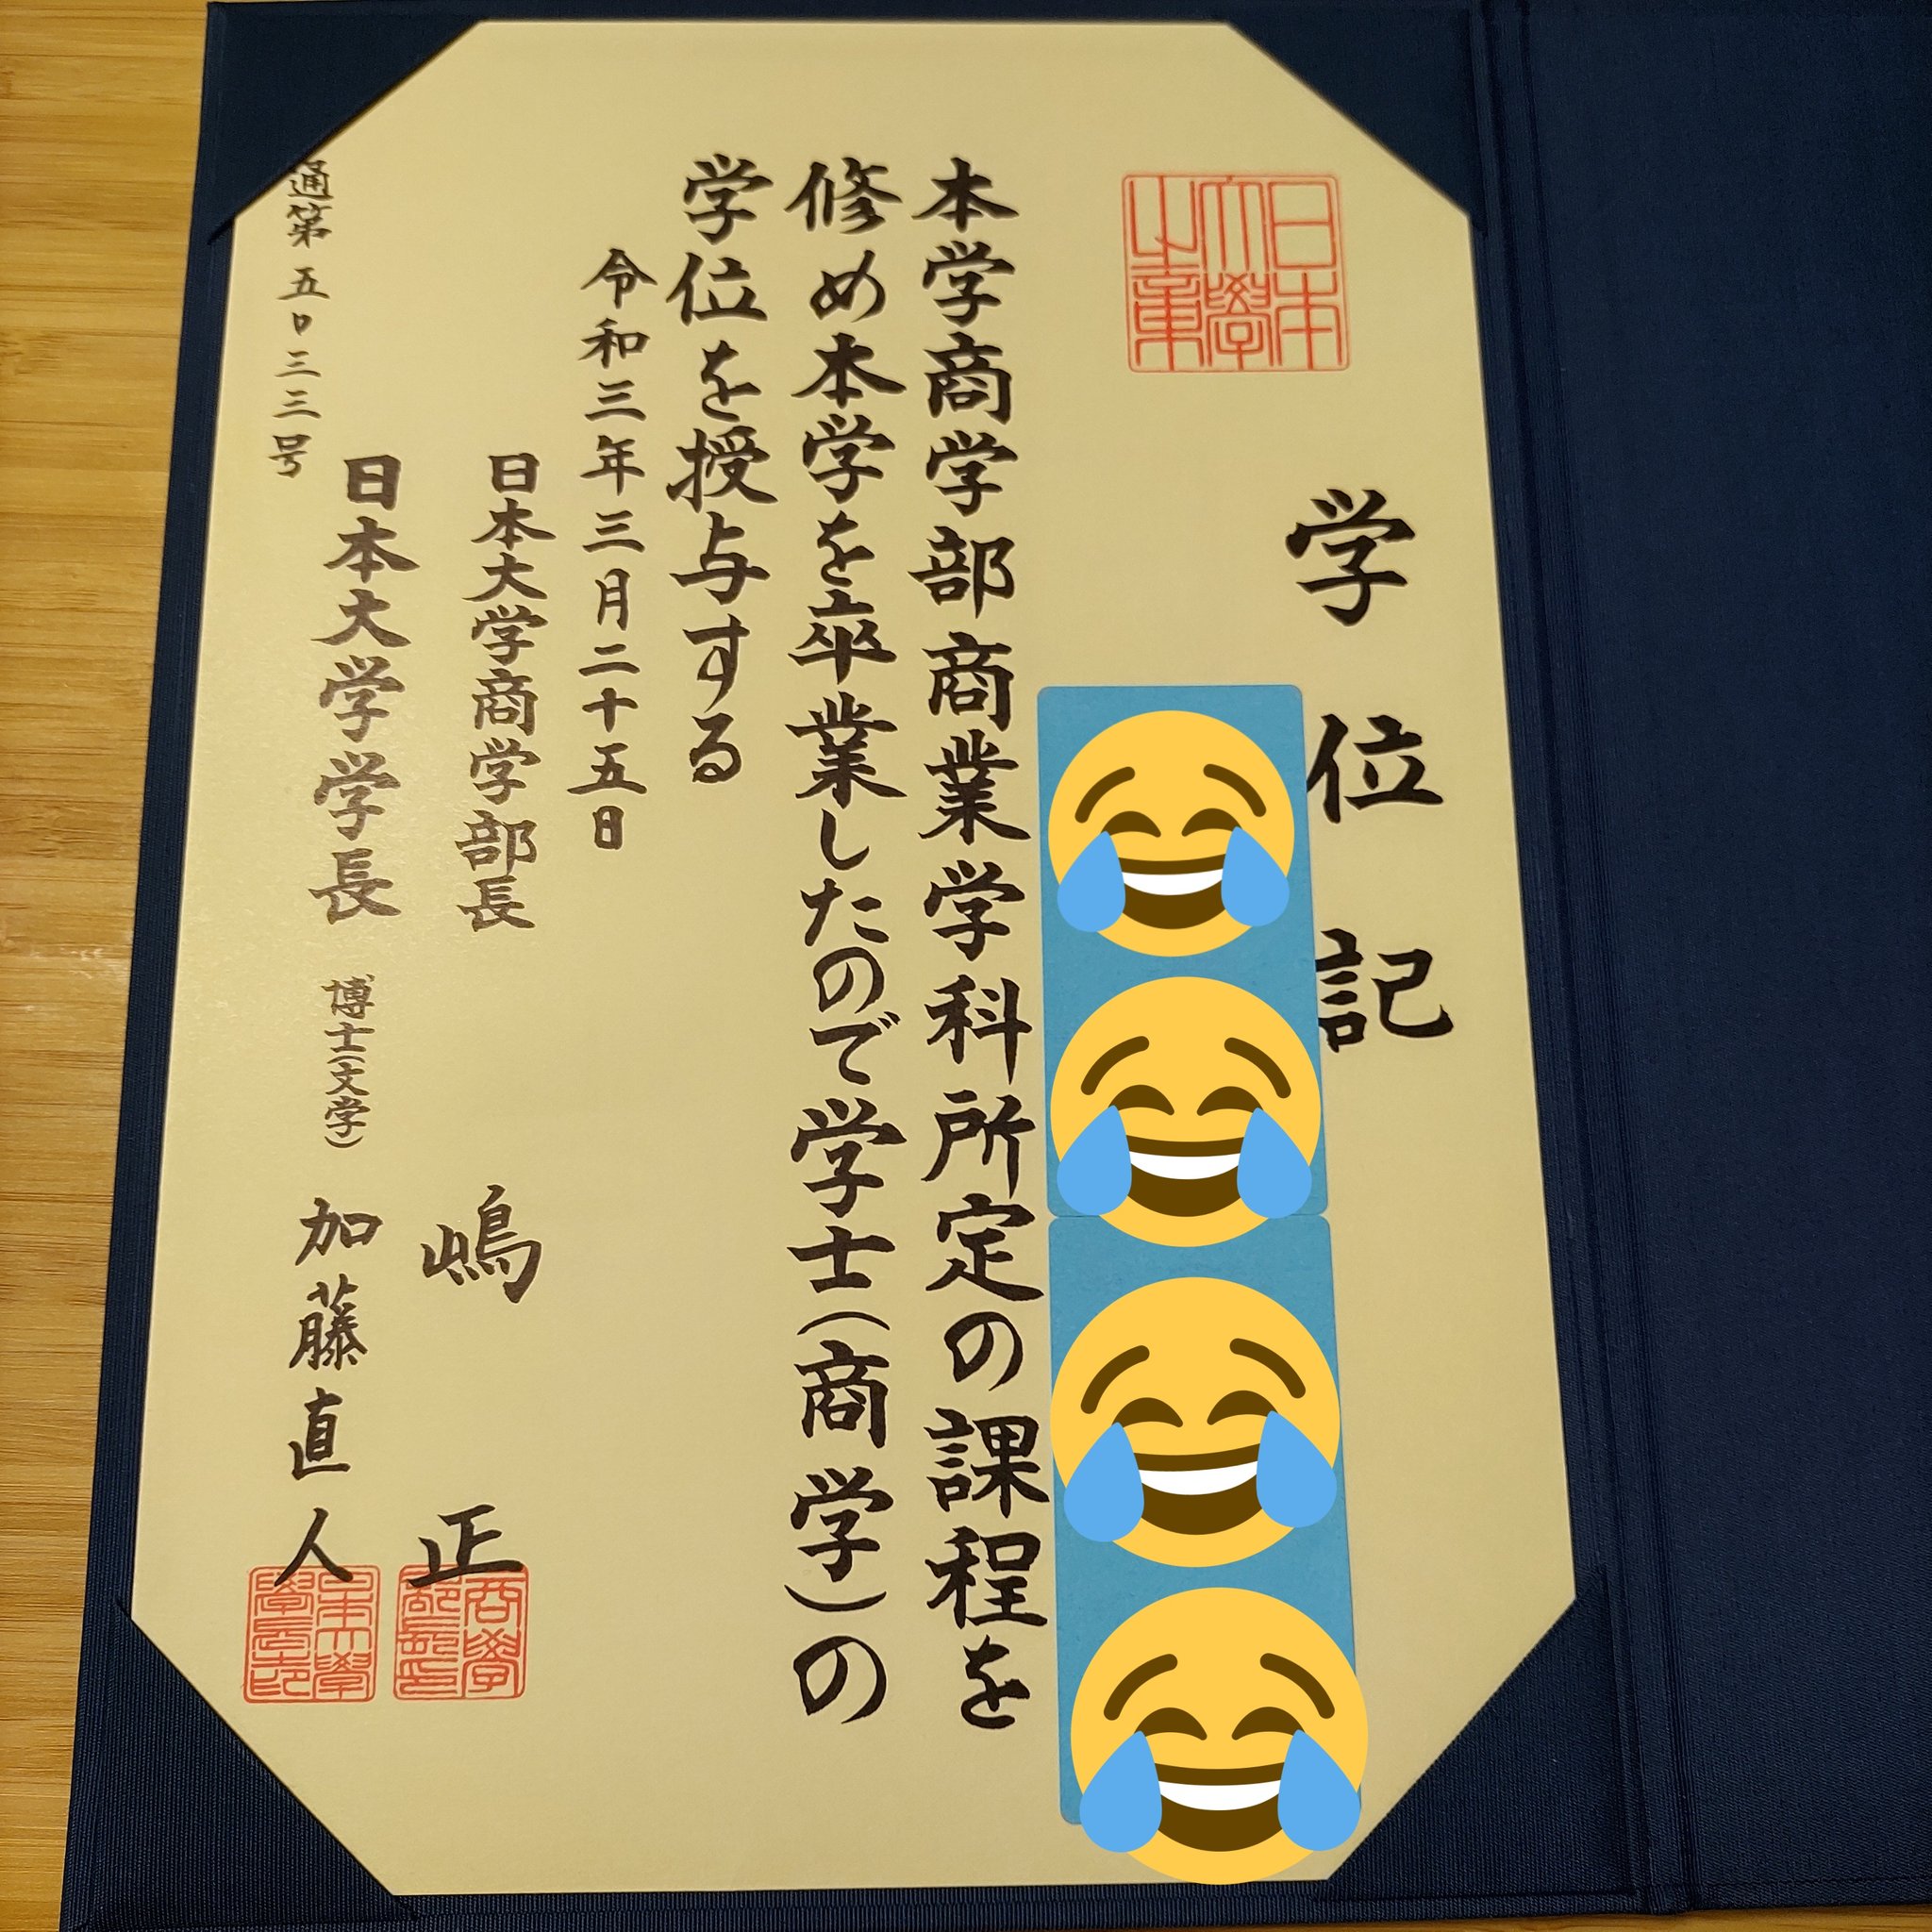 学位記
日本大學之章
本学商学部商業学科所定の課程を
修め本学を卒業したので学士(商学)の
学位を授与する
令和三年三月二十五日
日本大学商学部長 嶋 正
商學部長印
日本大学学長 博士(文学) 加藤直人
日本大學學長印
通第五〇三三三号